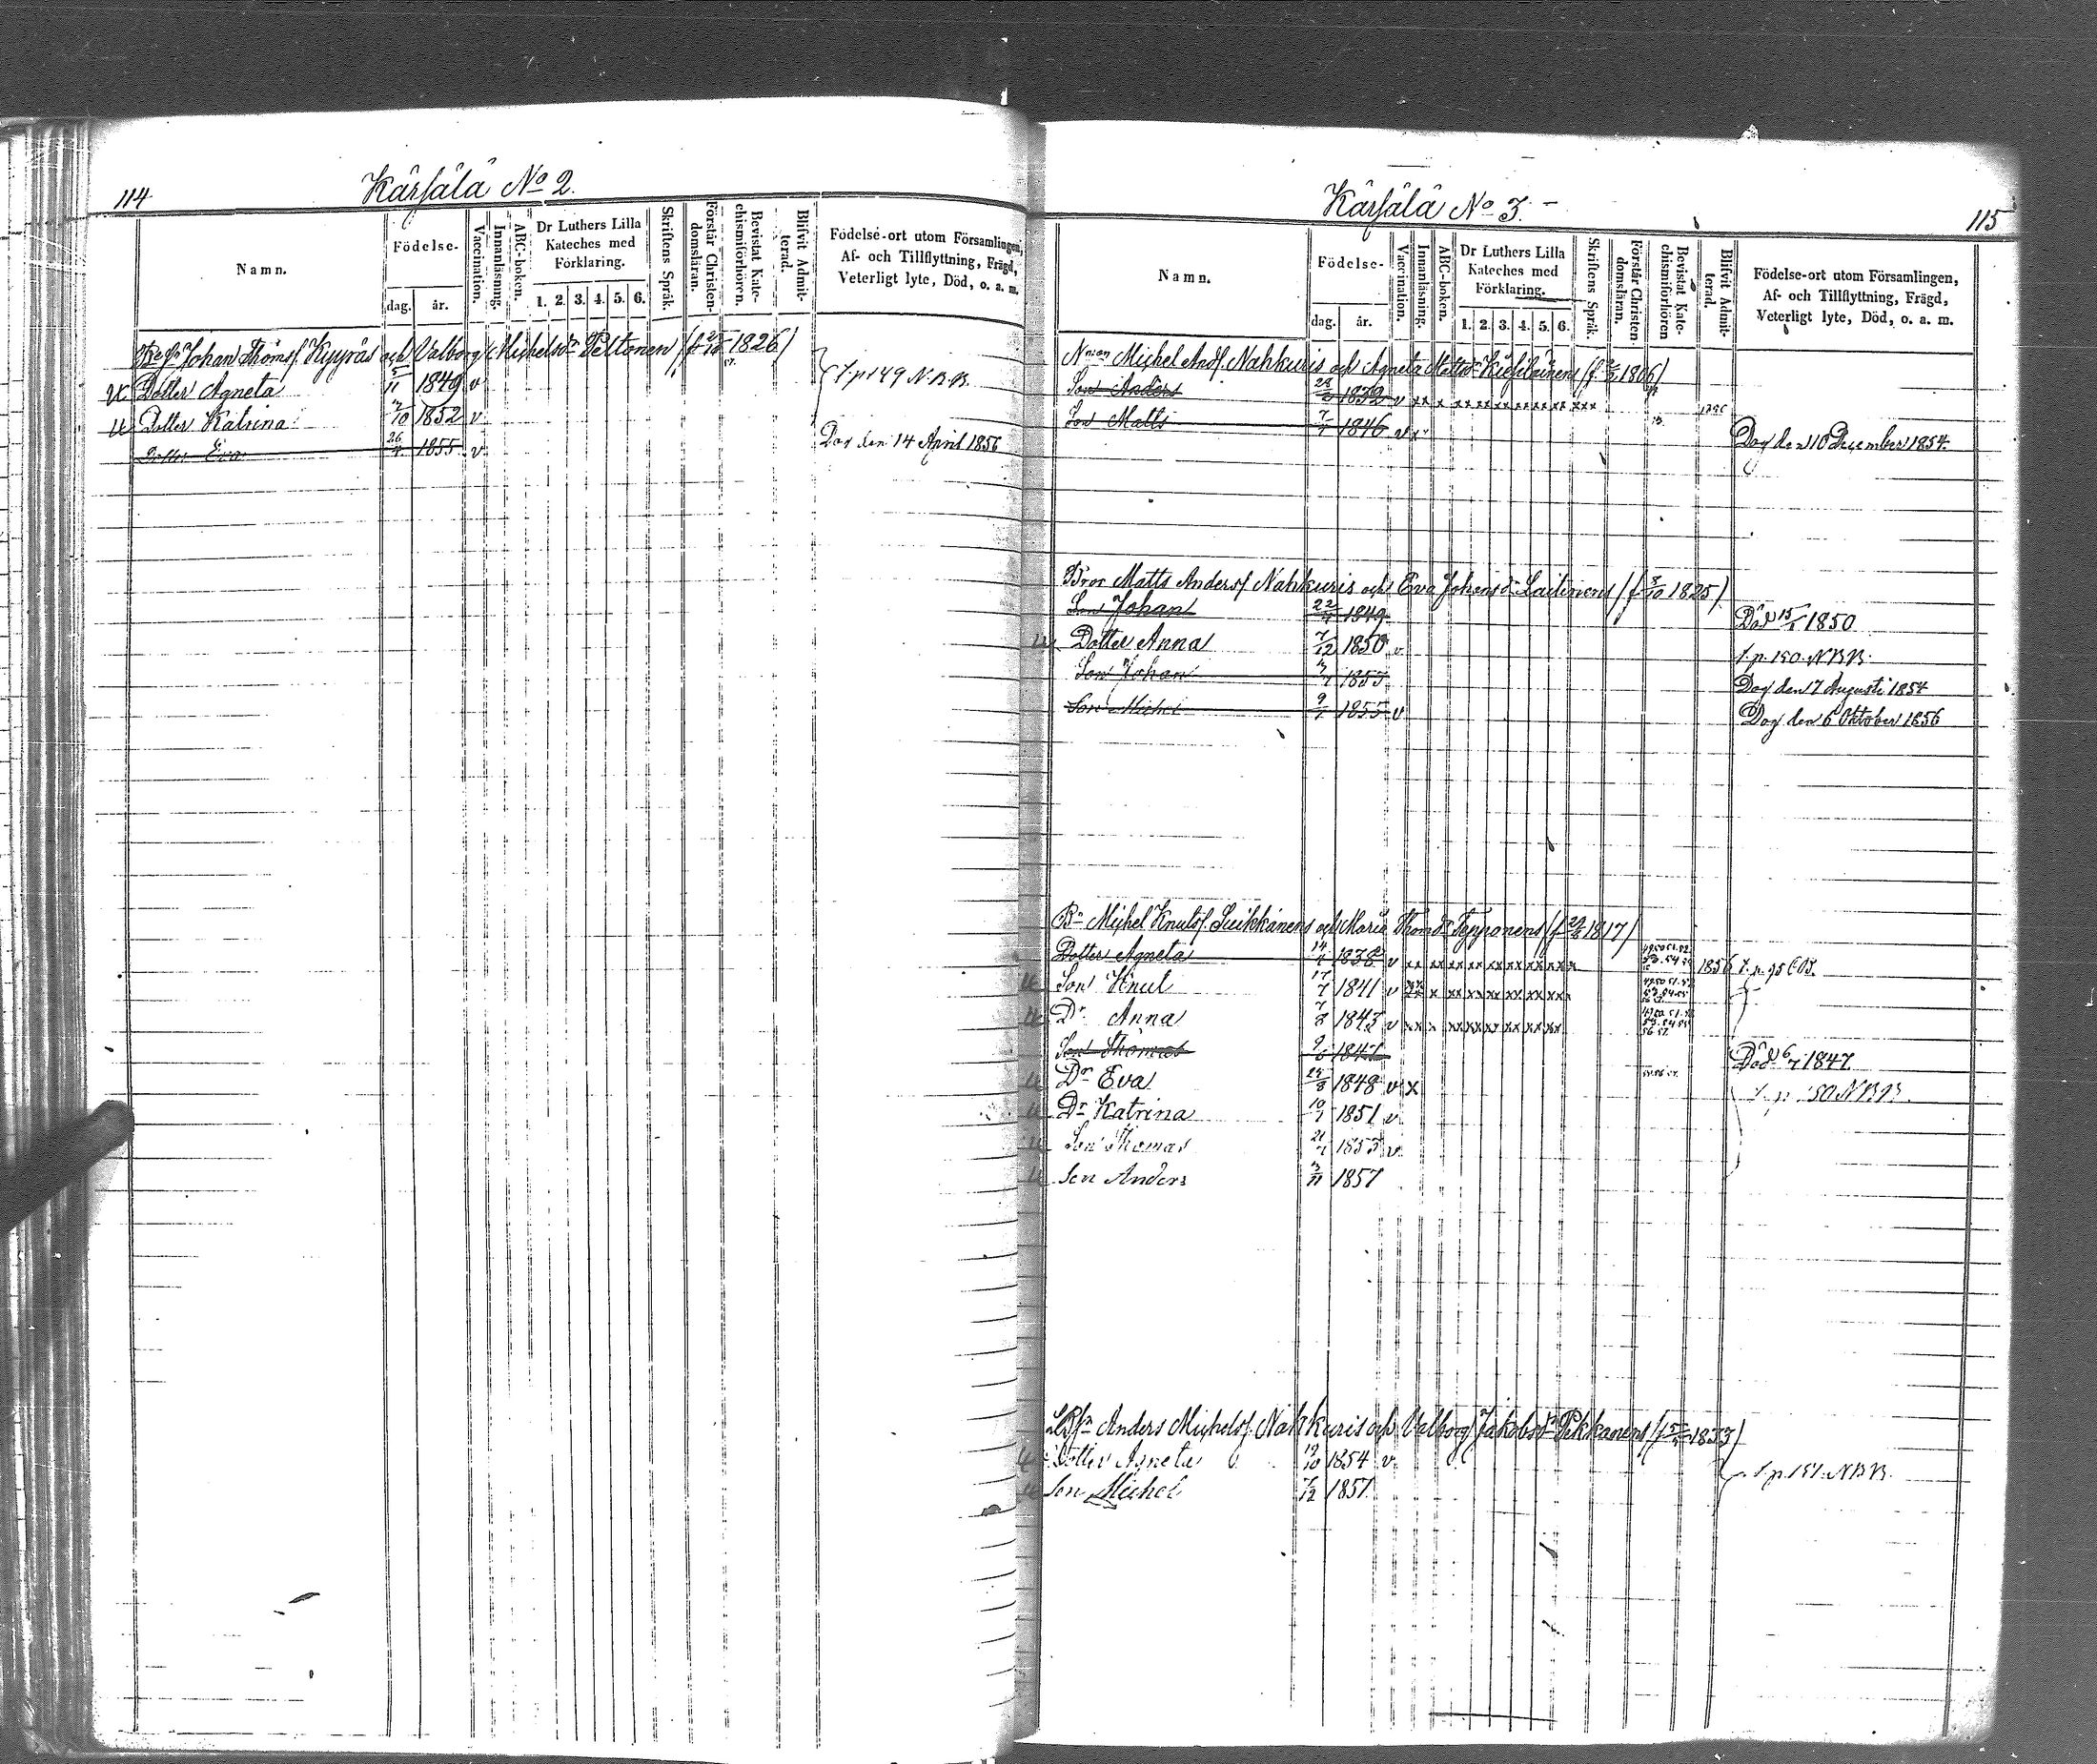 114
Kärsälä No 2.
Namn.
Födelse-
dag.
år.
Vaccination.
Innanläsning.
ABC-boken.
Dr Luthers Lilla Kateches med Förklaring.
1. 2. 3. 4. 5. 6.
Skriftens Språk.
Förstår Christendomsläran.
Bevistat Katechismiförhören.
Blifvit Admitterad.
Födelse-ort utom Församlingen,
Af- och Tillflyttning, Frägd,
Veterligt lyte, Död, o. a. m.
Johan Thomsf. Kyyräs och Valborg Michelsdr Peltonen 1826)
Dotter Agneta 1849 v
t. p 149 N.B.B.
Dotter Katrina 1852 v
Dotter Eva 26/2 1855 v Dog den 14 April 1856
Kärsälä No 3.
115
Namn.
Födelse-
dag.
år.
Vaccination.
Innanläsning.
ABC-boken.
Dr Luthers Lilla Kateches med Förklaring.
1. 2. 3. 4. 5. 6.
Skriftens Språk.
Förstår Christendomsläran.
Bevistat Katechismiförhören
Blifvit Admitterad.
Födelse-ort utom Församlingen,
Af- och Tillflyttning, Frägd,
Veterligt lyte, Död, o. a. m.
Michel Andf. Nahkuris och Agneta 1806)
Son Anders 1832 v xx x xx xx xx xx xx xx xxx
Son Matts 1846 v x Dog den 10 December 1854.
Bror Matts Andersf. Nahkuris och Eva Johansdr Laitinens (f. 8/10 1825)
Son Johan 1849 Död 15/1 1850
Dotter Anna 7/12 1850 v t. p. 150 N.B.B.
Son Johan 1853 Dog den 7 Augusti 1854
Son Michel 1855 v Dog den 6 Oktober 1856
Michel Knutsf. Suikkanens och Maria Thomdr Teppanens 1817)
Dotter Agneta 1838 v xx xx xx xx xx xx xx x 1856
Son Knut 17/7 1841 v x xx xx xx xx xx xx
Dr Anna 1843 v xx x xx xx xx xx xx xx
Son Thomas 1847 Död 6/7 1847
Dr Eva 1848 v x
50 N.B.B.
Dr Katrina 1851 v
Son Thomas 1853 v
Son Anders 1857
Anders Michelsf. Nahkuris och Valborg Jakobsdr Pekkanens 1833)
Dotter Agneta 1854 v
t. p. 151 N.B.B.
Son Michel 1857